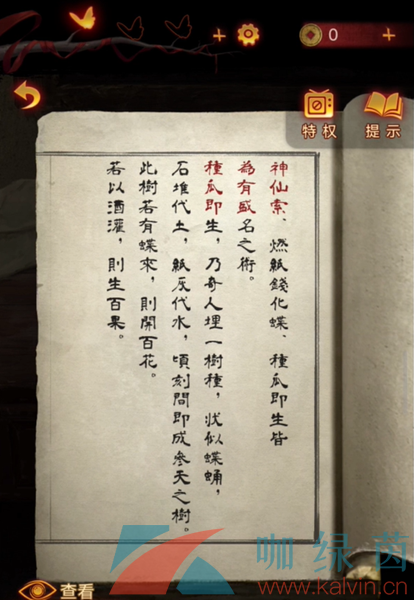 +
0
+
特权
提示
神仙索、燃紙錢化蝶、種瓜即生皆
為有盛名之術。
種瓜即生，乃奇人埋一樹種，狀似蝶蛹，
石堆代土，紙灰代水，頃刻間即成參天之樹。
此樹若有蝶來，則開百花。
若以酒灌，則生百果。
查看
咖绿茵
www.kalvin.cn